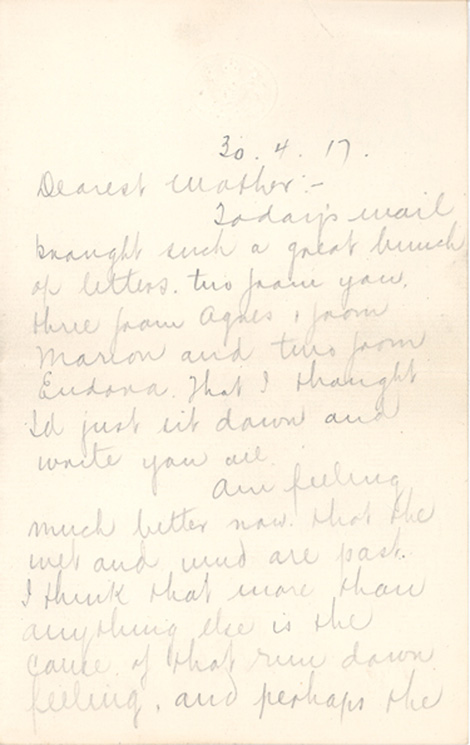 30. 4. 17.
Dearest Mother:-
Today's mail
brought such a great bunch
of letters. two from you,
three from Agnes, 1 from
Marion and two from
Eudora. That I thought
I'd just sit down and
write you all.
Am feeling
much better now. that the
wet and wind are past.
I think that more than
anything else is the
cause of that run down
feeling, and perhaps the